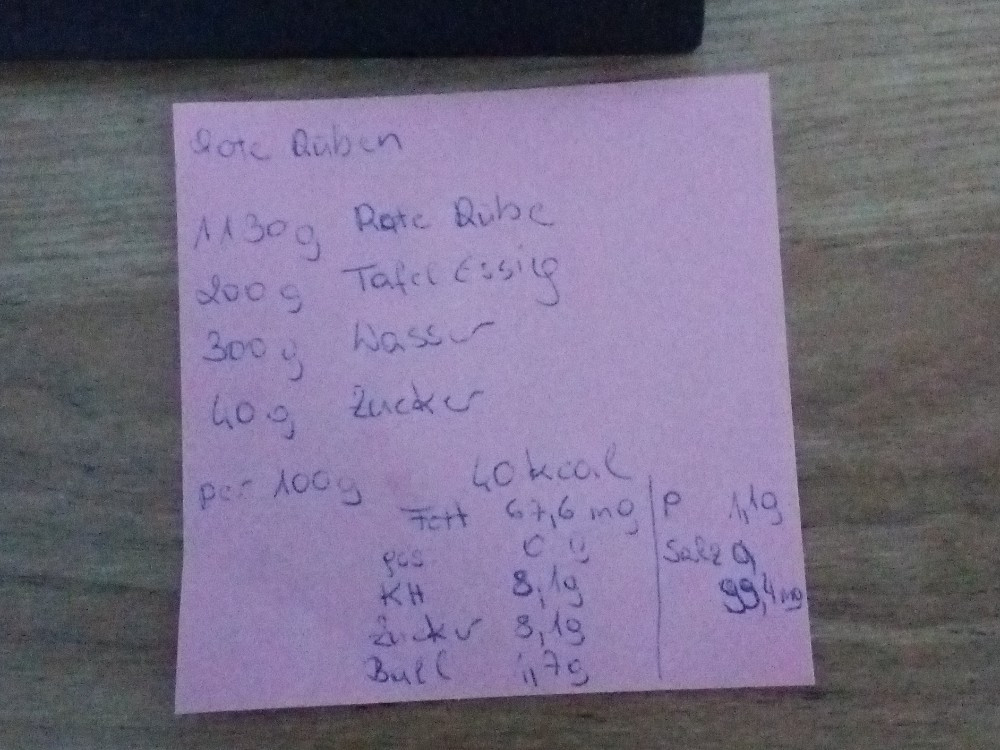 Rote Rüben
1130g Rote Rübe
200g Tafel Essig
300g Wasser
40g Zucker
per 100g 40 kcal
Fett 67,6 mg
ges 0 g
KH 8,1g
Zucker 8,1g
Ball 1,7g
P 1,1g
Salz
99,4 mg